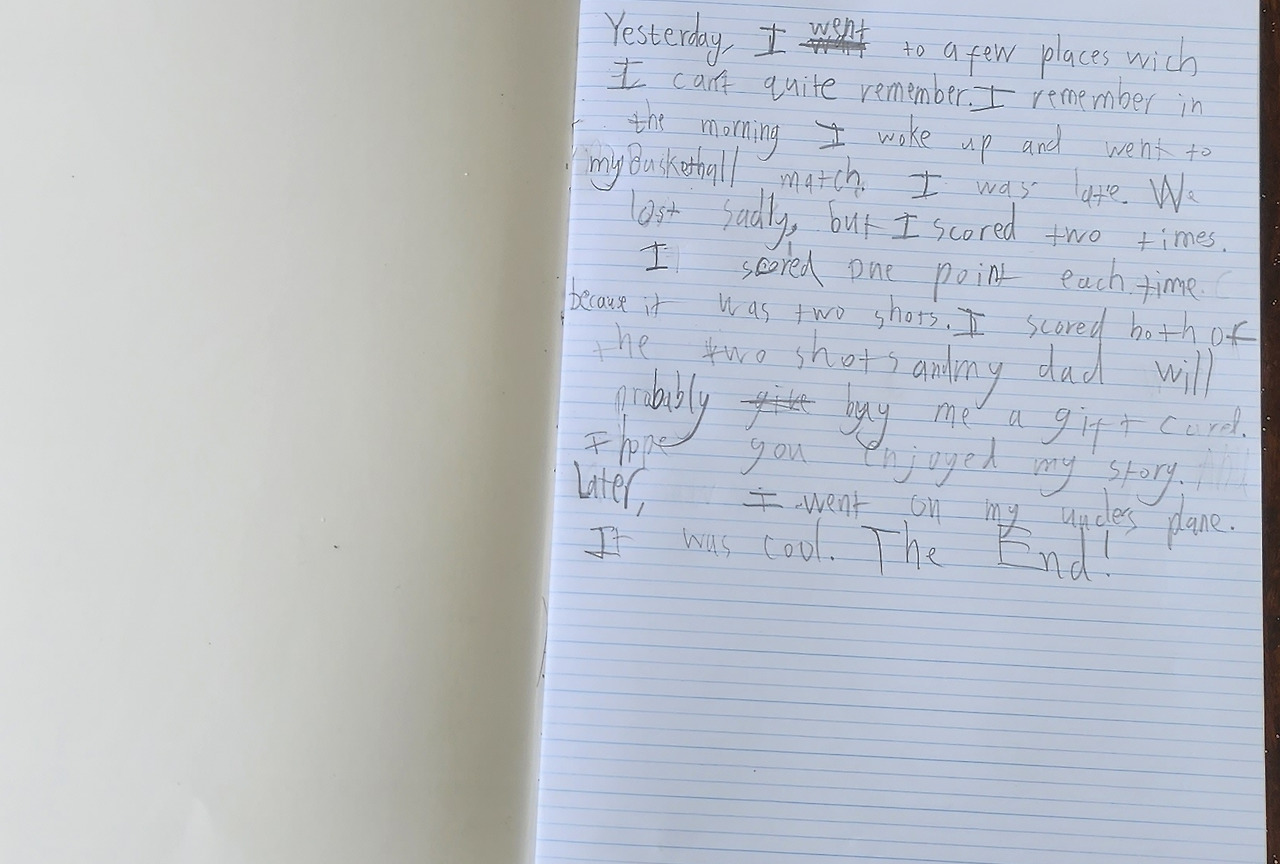 Yesterday, I went to a few places wich
I can't quite remember. I remember in
the morning I woke up and went to
my Basketball match. I was late. We
lost sadly, but I scored two times.
I scored one point each time
because it was two shots. I scored both of
the two shots and my dad will
probably buy me a gift card.
I hope you enjoyed my story.
Later, I went on my uncles plane.
It was cool. The End!